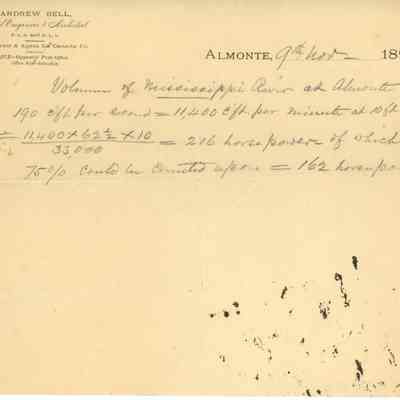 ANDREW BELL,
Engineer & Architect
ALMONTE, 9th Nov 189
Volume of Mississippi River at Almonte
190 cft per second = 11,400 cft per minute at 10 ft
= 11,400 × 62½ × 10 = 216 horse power of which
33,000
75% could be counted upon = 162 horse po